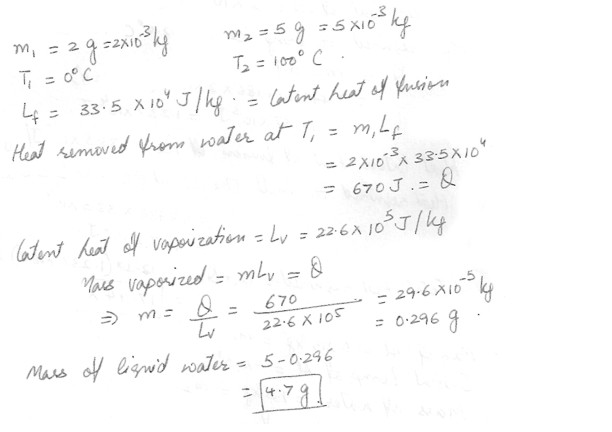 m₁ = 2 g = 2×10⁻³ kg
m₂ = 5 g = 5×10⁻³ kg
T₁ = 0° C
T₂ = 100° C.
L_f = 33.5 × 10⁴ J/kg. = latent heat of fusion
Heat removed from water at T₁ = m₁L_f
= 2×10⁻³ × 33.5×10⁴
= 670 J. = Q
latent heat of vaporization = Lv = 22.6 × 10⁵ J/kg
Mass vaporized = mLv = Q
⇒ m = Q/Lv = 670/22.6 × 10⁵ = 29.6 × 10⁻⁵ kg
= 0.296 g.
Mass of liquid water = 5 - 0.296
= 4.7 g